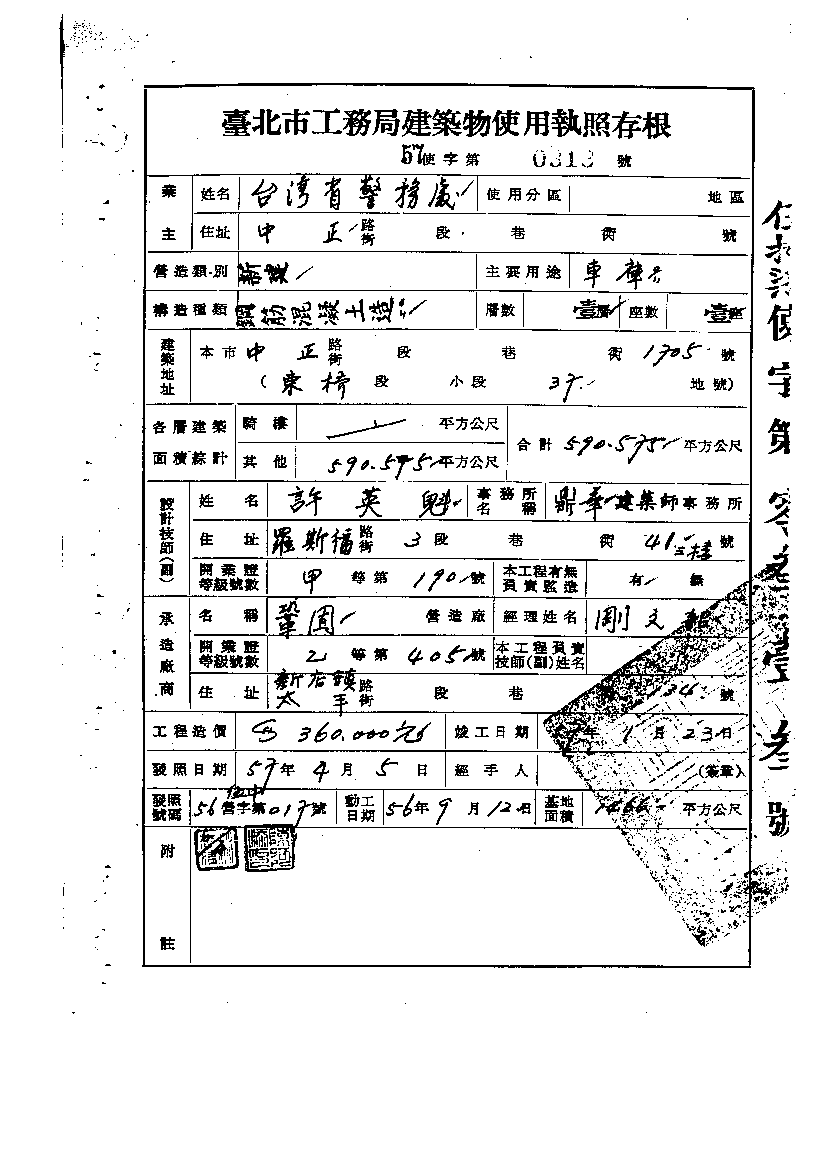 臺北市工務局建築物使用執照存根
57使字第 0313 號
業主 姓名 台湾省警務處 使用分區 地區
住址 中正路街 段 巷 衖 號
營造類別 新建 主要用途 車庫
構造種類 鋼筋混凝土造 層數 壹層 座數 壹座
建築地址 本市中正路街 段 巷 衖 1705 號
( 東橋 段 小段 37 地號)
各層建築面積綜計 騎樓 平方公尺 合計 590.575 平方公尺
其他 590.575 平方公尺
設計技師(副) 姓名 許英魁 事務所名稱 鼎華建築師事務所
住址 羅斯福路街 3 段 巷 衖 41 號
開業證等級號數 甲 等第 190 號 本工程有無負實監造 有 無
承造廠商 名稱 鞏固 營造廠 經理姓名 剛文
開業證等級號數 乙 等第 405 號 本工程負責技師(副)姓名
住址 新店鎮太平路街 段 巷 衖 134 號
工程造價 360.000元 竣工日期 年 1 月 23 日
發照日期 57年 4 月 5 日 經手人 (簽章)
發照號碼 56營字第017號 動工日期 56年 9 月 12日 基地面積 1466 平方公尺
附註
使字第零叁壹叁號